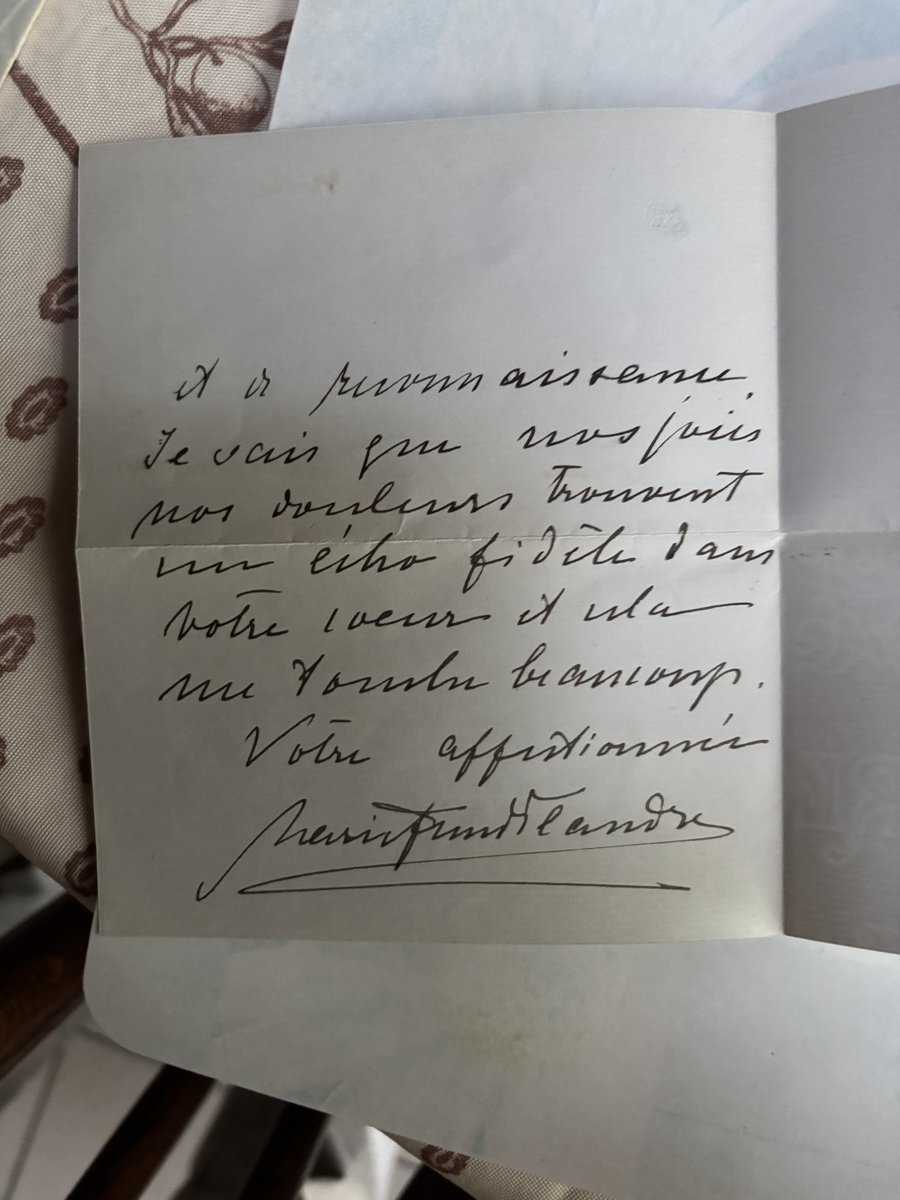 et de reconnaissance.
Je sais que nos joies
nos douleurs trouvent
un écho fidèle dans
votre coeur et cela
me touche beaucoup.
Votre affectionnée